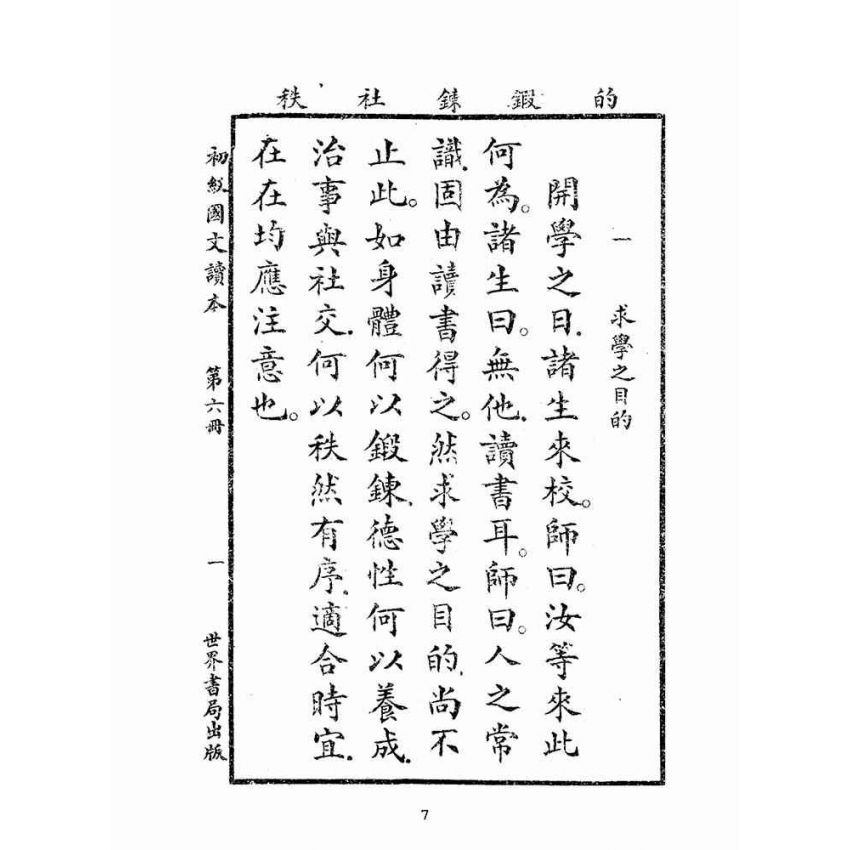 的 鍛 鍊 社 秩
一 求學之目的
開學之日、諸生來校。師曰。汝等來此
何為。諸生曰。無他、讀書耳。師曰。人之常
識、固由讀書得之。然求學之目的、尚不
止此。如身體何以鍛鍊、德性何以養成、
治事與社交、何以秩然有序、適合時宜、
在在均應注意也。
初級國文讀本 第六冊 一 世界書局出版
7